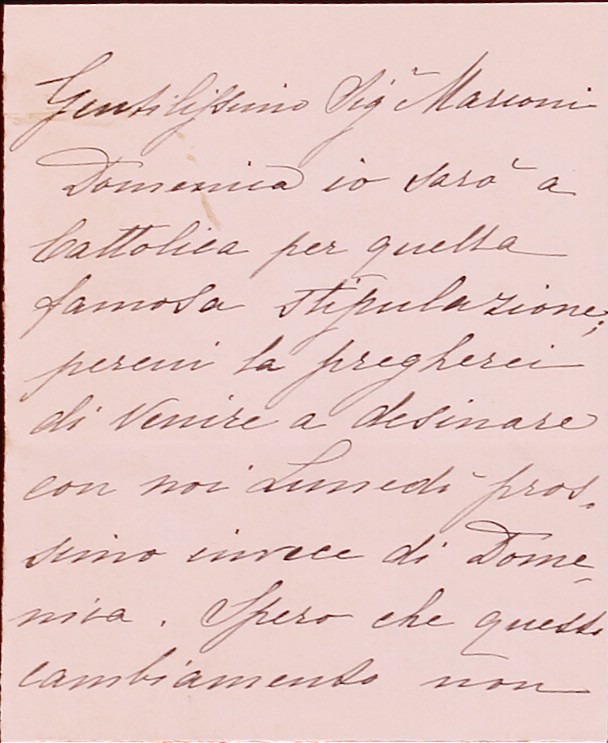 Gentilissimo Sigr Marconi
Domenica io sarò a
Cattolica per quella
famosa stipulazione;
percui la pregherei
di venire a desinare
con noi Lunedì pros-
simo invece di Dome-
nica. Spero che questo
cambiamento non